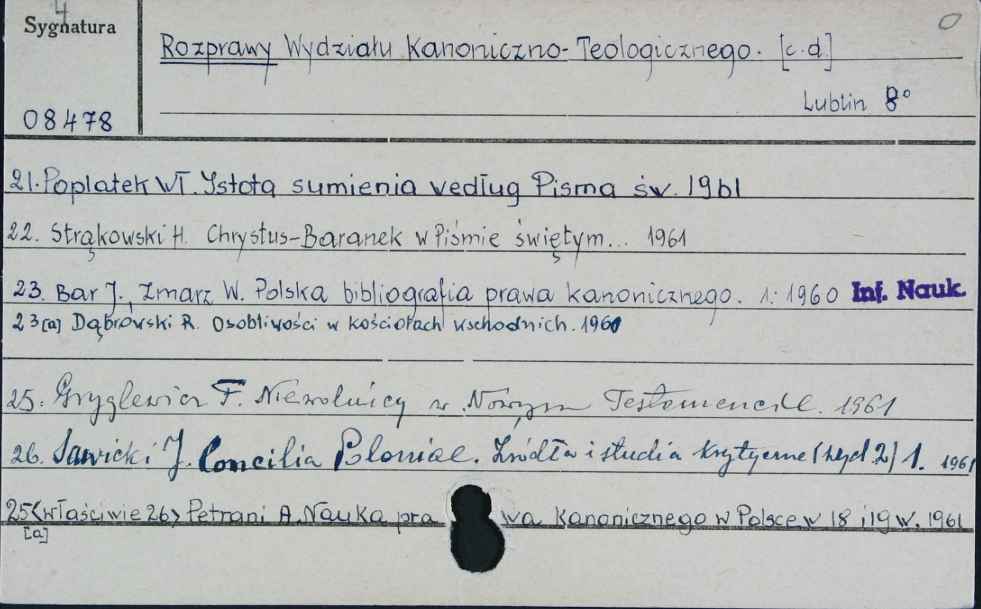 4
Sygnatura
08478
Rozprawy Wydziału Kanoniczno-Teologicznego. [c.d]
Lublin 8°
21. Poplatek Wł. Istota sumienia według Pisma św. 1961
22. Strąkowski H. Chrystus-Baranek w Piśmie świętym... 1961
23. Bar J., Zmarz W. Polska bibliografia prawa kanonicznego. 1: 1960 Inf. Nauk.
23[a] Dąbrowski R. Osobliwości w kościołach wschodnich. 1960
25. Gryglewicz F. Niewolnicy w Nowym Testamencie. 1961
26. Sawicki J. Concilia Poloniae. Źródła i studia krytyczne (Wyd 2) 1. 1961
25<właściwie 26> Petrani A. Nauka prawa kanonicznego w Polsce w 18 i 19 w. 1961
[a]